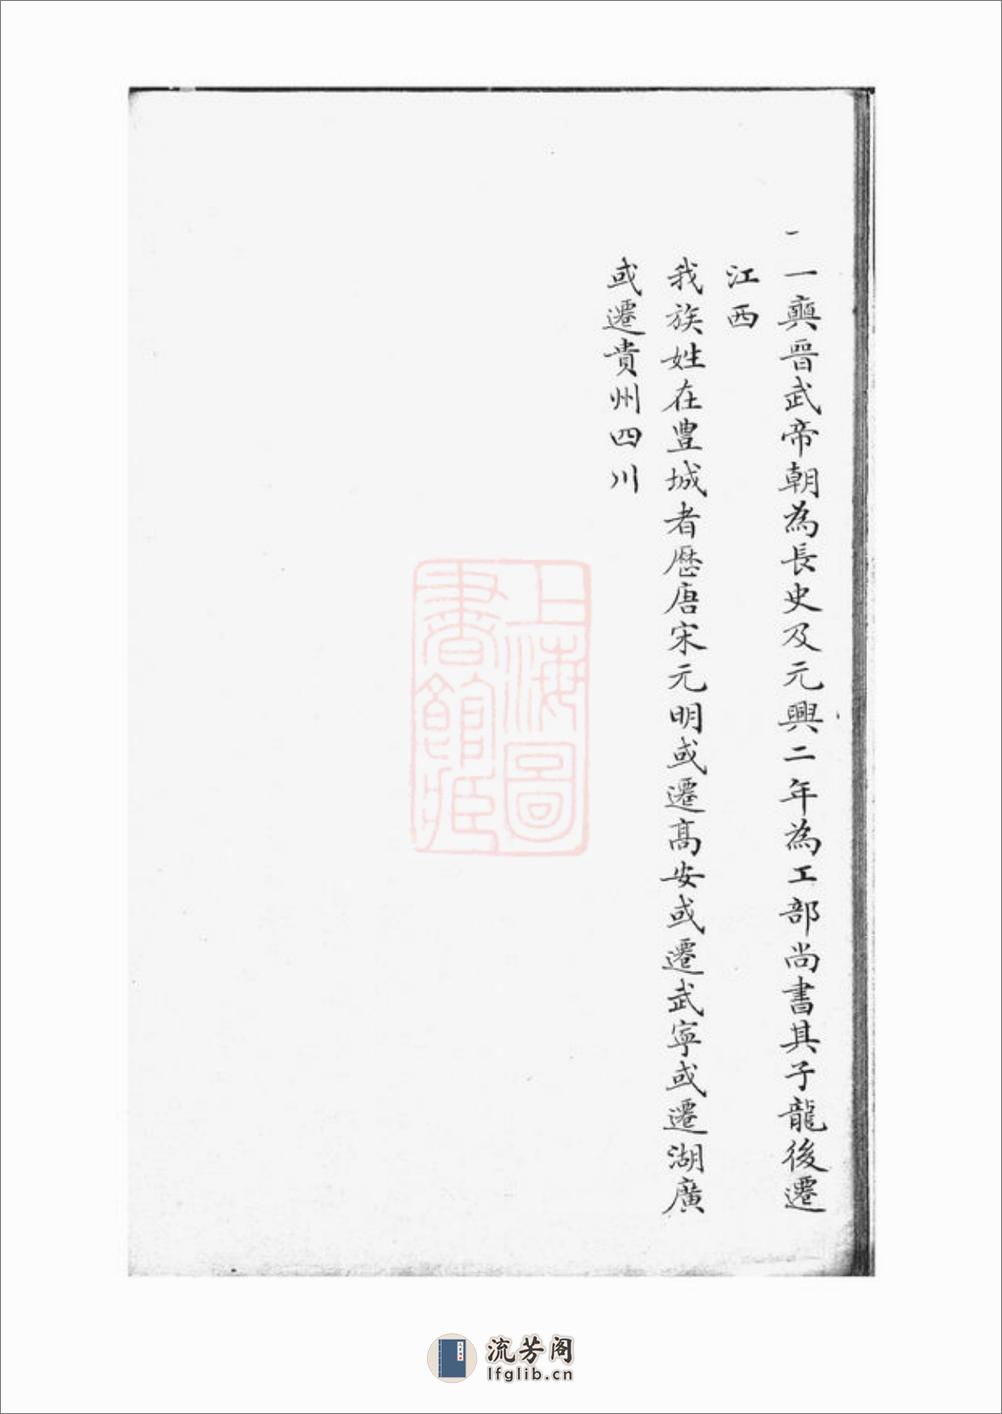 一興晉武帝朝為長史及元興二年為工部尚書其子龍後遷
江西
我族姓在豊城者歷唐宋元明或遷髙安或遷武寧或遷湖廣
或遷貴州四川
上海圖
書館藏
流芳阁
lfglib.cn